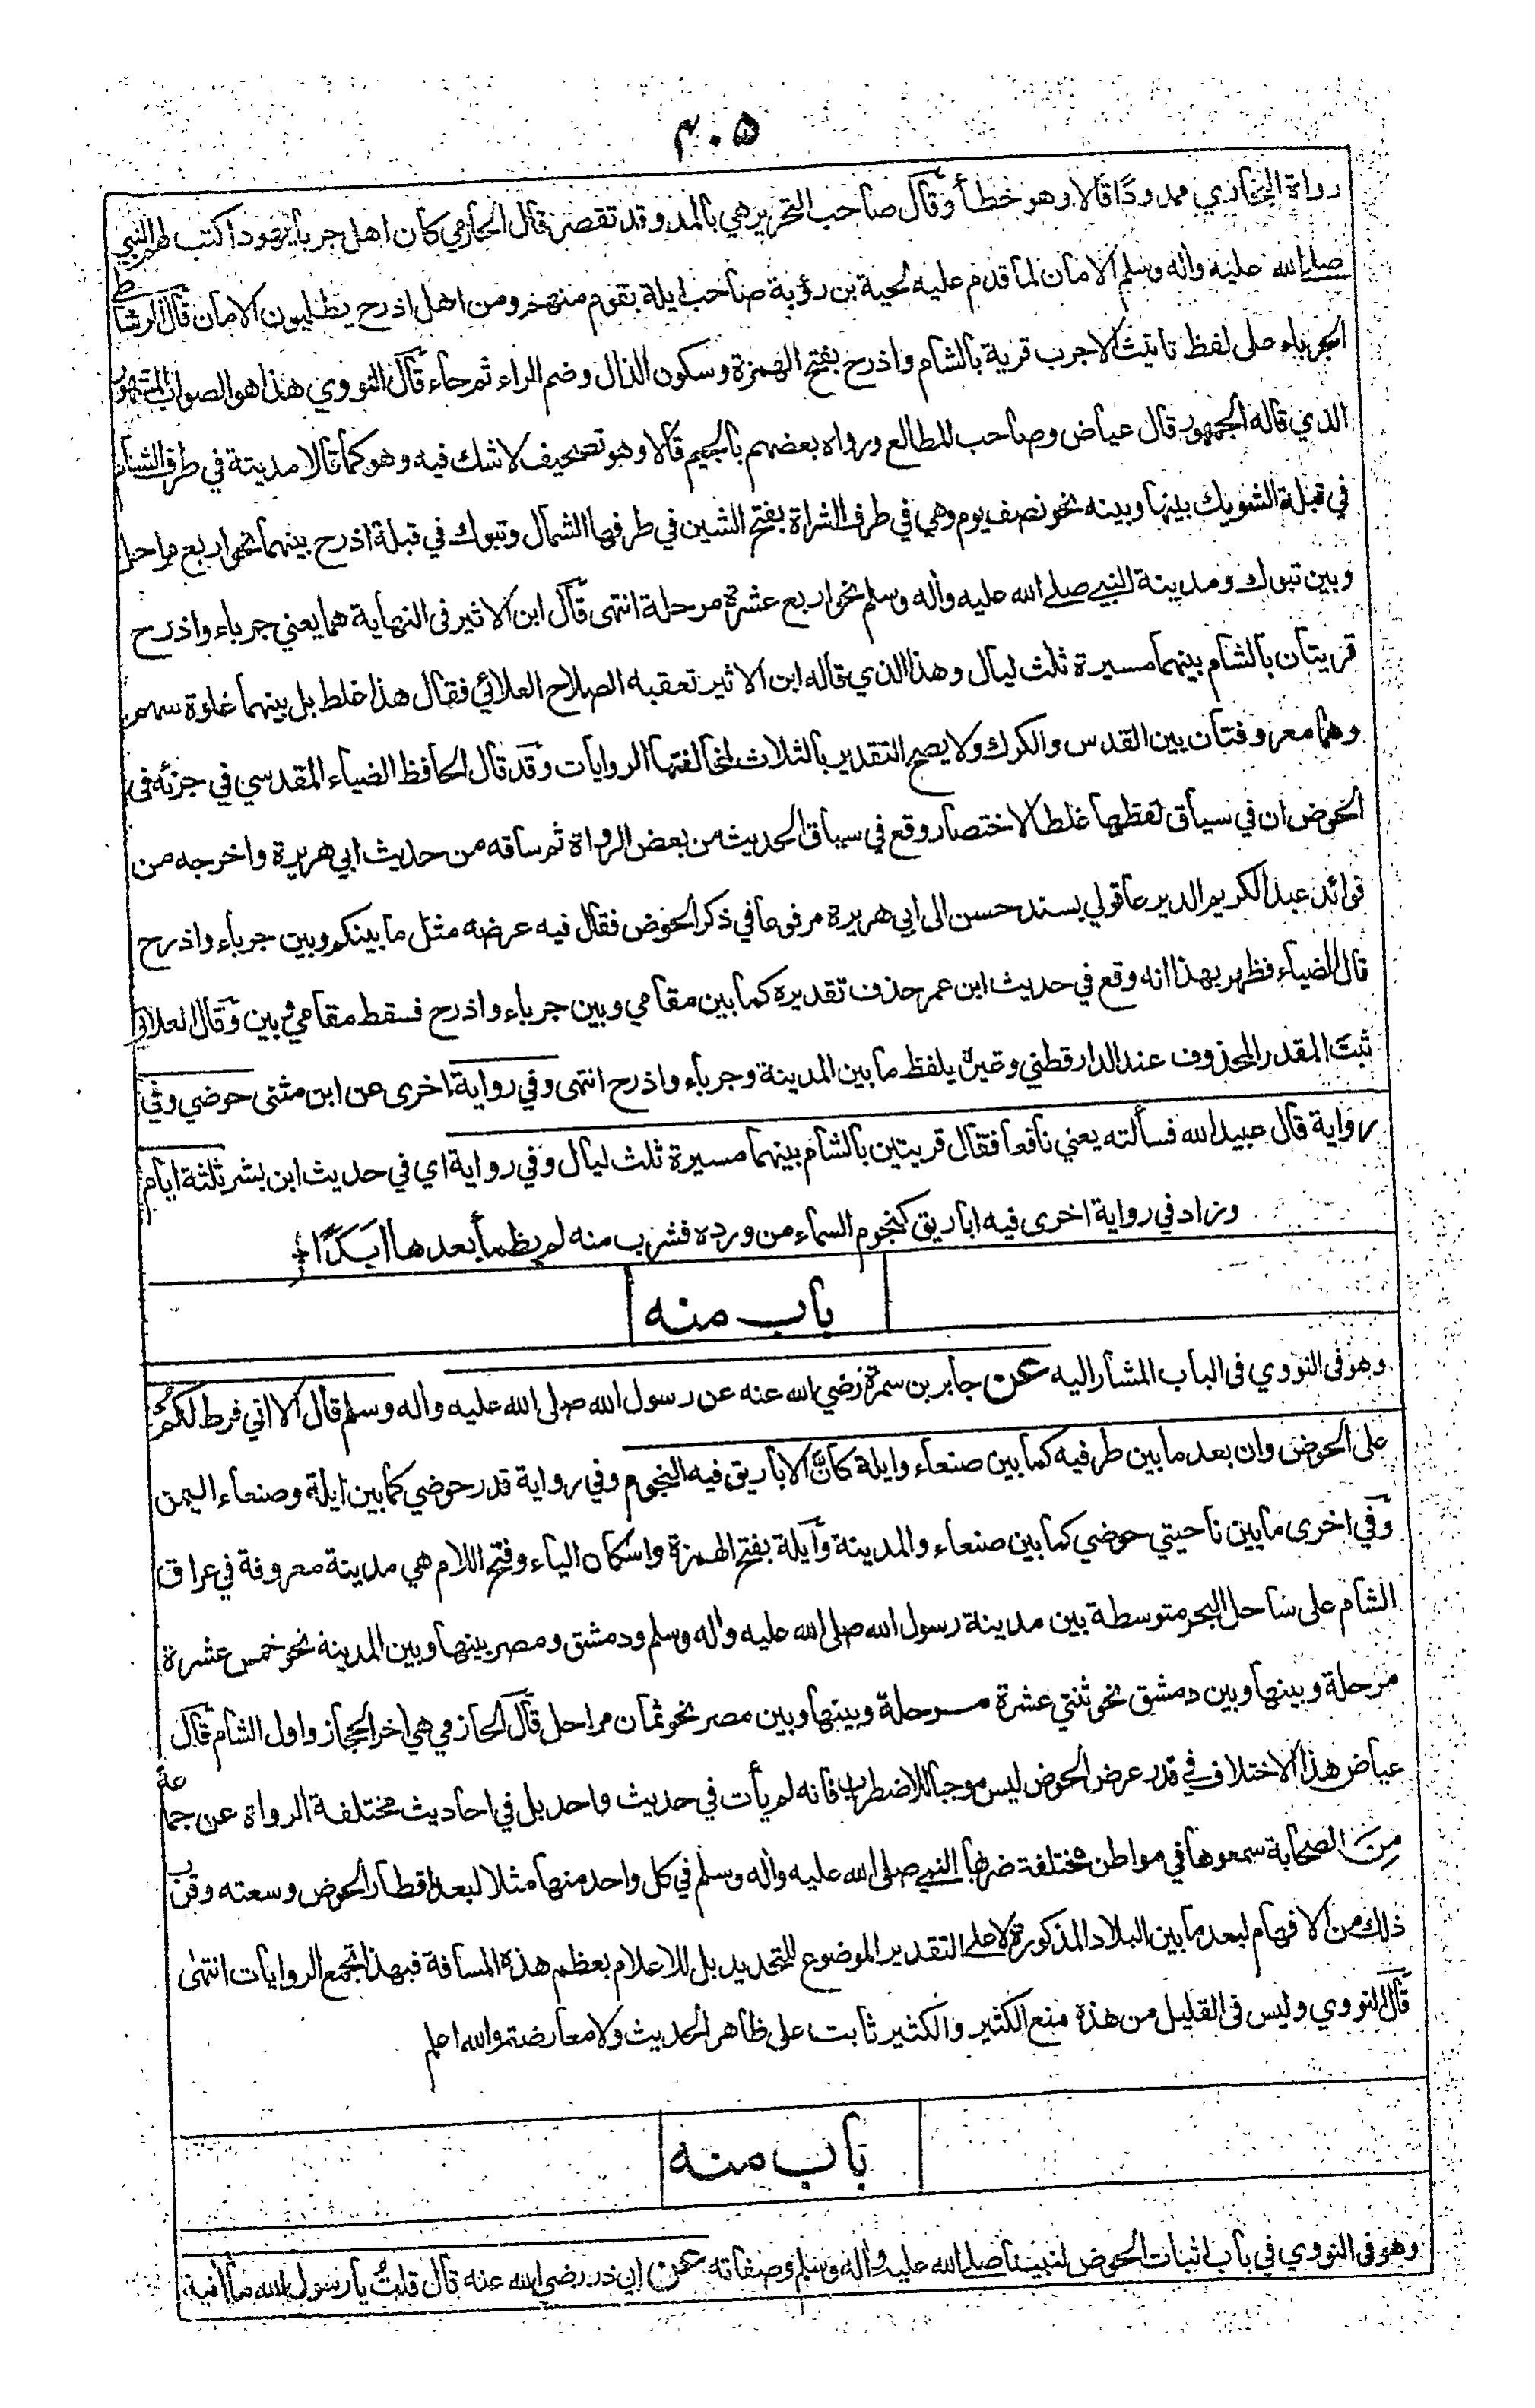 ۴۰۵
رواة البخاري ممدودًا قالا وهو خطأ وقال صاحب التحرير هي بالمد وقد تقصر قال الحازمي كان اهل جرباء يهودا كتب لهم النبي
صلى الله عليه واله وسلم الامان لما قدم عليه لحية بن رؤبة صاحب ايلة بقوم منهم ومن اهل اذرح يطلبون الامان قال الرشاطي
الجرباء على لفظ تانيث الاجرب قرية بالشام واذرح بفتح الهمزة وسكون الذال وضم الراء ثم حاء قال النووي هذا هو الصواب المشهور
الذي قاله الجمهور قال عياض وصاحب المطالع ورواه بعضهم بالجيم قالا وهو تصحيف لاشك فيه وهو كما قالا مدينة في طرف الشام
في قبلة الشوبك بينها وبينه نحو نصف يوم وهي في طرف الشراة بفتح الشين في طرفها الشمال وتبوك في قبلة اذرح بينهما نحو اربع مراحل
وبين تبوك ومدينة النبي صلى الله عليه واله وسلم نحو اربع عشرة مرحلة انتهى قال ابن الاثير في النهاية هما يعني جرباء واذرح
قريتان بالشام بينهما مسيرة ثلث ليال وهذا الذي قاله ابن الاثير تعقبه الصلاح العلائي فقال هذا غلط بل بينهما غلوة سهم
وهما معروفتان بين القدس والكرك ولا يصح التقدير بالثلاث لمخالفتها الروايات وقد قال الحافظ الضياء المقدسي في جزئه في
الحوض ان في سياق لفظها غلطا لاختصار وقع في سياق الحديث من بعض الرواة ثم ساقه من حديث ابي هريرة واخرجه من
فوائد عبد الكريم الديرعاقولي بسند حسن الى ابي هريرة مرفوعا في ذكر الحوض فقال فيه عرضه مثل ما بينكم وبين جرباء واذرح
قال الضياء فظهر بهذا انه وقع في حديث ابن عمر حذف تقديره كما بين مقامي وبين جرباء واذرح فسقط مقامي وبين وقال العلائي
ثبت المقدر المحذوف عند الدارقطني وغيره بلفظ ما بين المدينة وجرباء واذرح انتهى وفي رواية اخرى عن ابن مثنى حوضي وفي
رواية قال عبيد الله فسألته يعني نافعا فقال قريتين بالشام بينهما مسيرة ثلث ليال وفي رواية اي في حديث ابن بشر ثلثة ايام
وزاد في رواية اخرى فيه اباريق كنجوم السماء من ورده فشرب منه لم يظمأ بعدها ابَدًا
باب منه
وهو في النووي في الباب المشار اليه عن جابر بن سمرة رضي الله عنه عن رسول الله صلى الله عليه واله وسلم قال الا اني فرط لكم
على الحوض وان بعد ما بين طرفيه كما بين صنعاء وايلة كأنّ الاباريق فيه النجوم وفي رواية قدر حوضي كما بين ايلة وصنعاء اليمن
وفي اخرى ما بين ناحيتي حوضي كما بين صنعاء والمدينة وايلة بفتح الهمزة واسكان الياء وفتح اللام هي مدينة معروفة في عراق
الشام على ساحل البحر متوسطة بين مدينة رسول الله صلى الله عليه واله وسلم ودمشق ومصر بينها وبين المدينة نحو خمس عشرة
مرحلة وبينها وبين دمشق نحو ثنتي عشرة مرحلة وبينها وبين مصر نحو ثمان مراحل قال الحازمي هي اخر الحجاز واول الشام قال
عياض هذا الاختلاف في قدر عرض الحوض ليس موجبا للاضطراب فانه لم يأت في حديث واحد بل في احاديث مختلفة الرواة عن جماعة
مِنَ الصحابة سمعوها في مواطن مختلفة ضربها النبي صلى الله عليه واله وسلم في كل واحد منها مثلا لبعد اقطار الحوض وسعته وقرب
ذلك من الافهام لبعد ما بين البلاد المذكورة لا على التقدير الموضوع للتحديد بل للاعلام بعظم هذه المسافة فبهذا تجمع الروايات انتهى
قال النووي وليس في القليل من هذه منع الكثير والكثير ثابت على ظاهر الحديث ولا معارضة والله اعلم
باب منه
وهو في النووي في باب اثبات الحوض لنبينا صلى الله عليه واله وسلم وصفاته عن ابي ذر رضي الله عنه قال قلت يا رسول الله ما انية